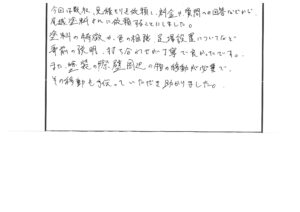 今回は数社、見積もりを依頼し、料金や質問への回答などから
尾越塗料さんに依頼することにしました。
塗料の特徴や、色の相談、足場設置についてなど
事前の説明、打ち合わせが丁寧で良かったです。
また、塗装の際、壁周辺の物の移動が必要で、
その移動も手伝っていただき助かりました。